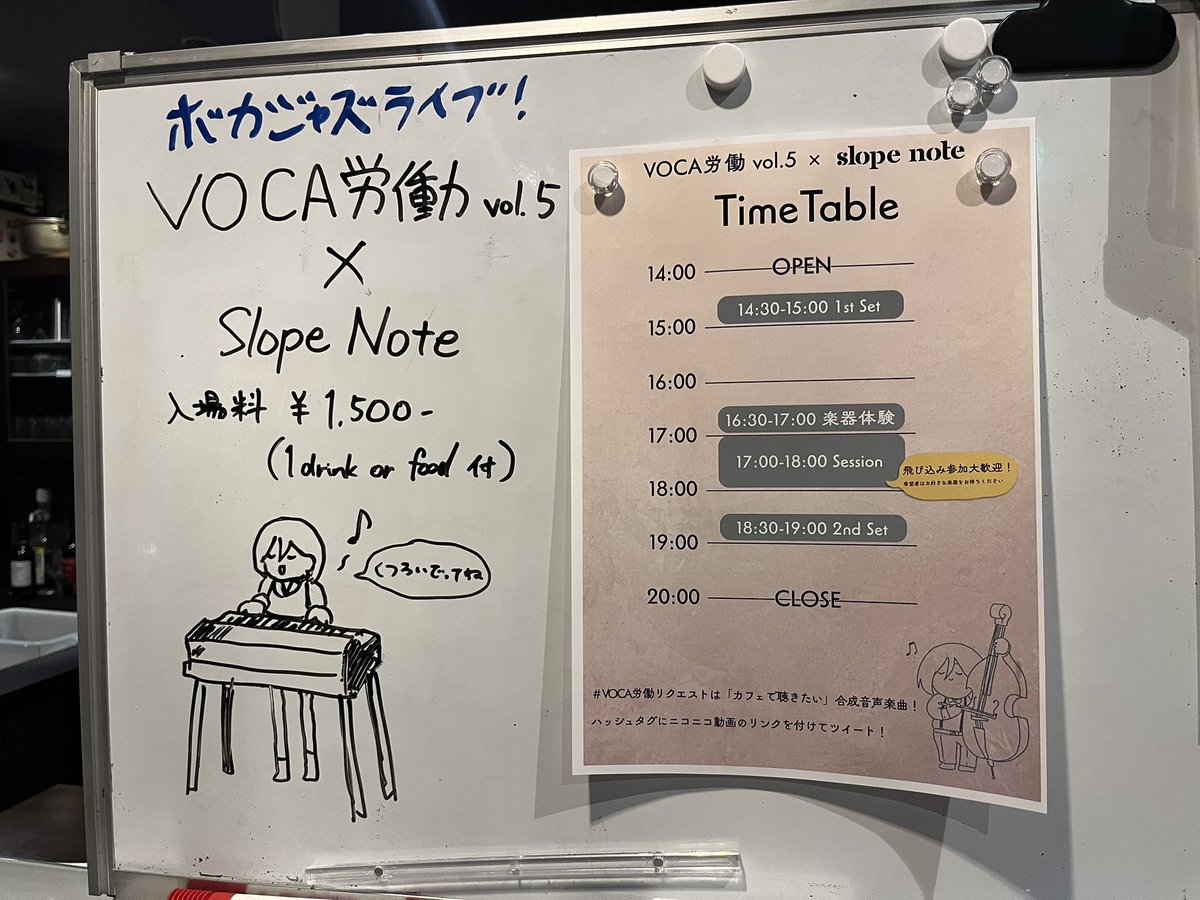 ボカジャズライブ!
VOCA労働力 vol.5
×
Slope Note
入場料 ¥1,500-
(1drink or food 付)
くつろいでってね
VOCA労働 vol.5 × slope note
TimeTable
14:00 OPEN
14:30-15:00 1st Set
15:00
16:00
16:30-17:00 楽器体験
17:00
17:00-18:00 Session
飛び込み参加大歓迎!
希望者はお好きな楽器をお持ちください
18:00
18:30-19:00 2nd Set
19:00
20:00 CLOSE
#VOCA労働リクエストは「カフェで聴きたい」合成音声楽曲!
ハッシュタグにニコニコ動画のリンクを付けてツイート!